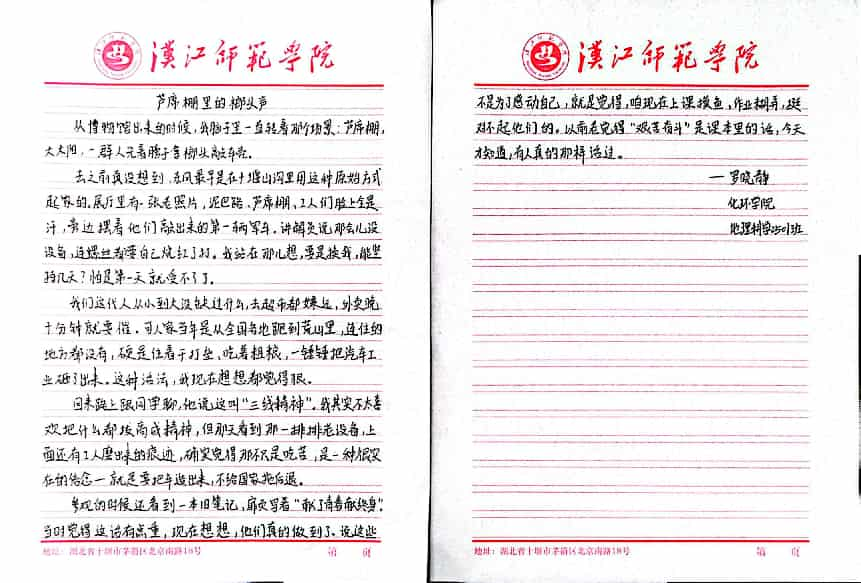 汉江师范学院
芦席棚里的榔头声
从博物馆出来的时候，我脑子里一直转着那个场景：芦席棚，
大太阳，一群人光着膀子拿榔头敲车壳。
去之前真没想到，东风最早是在十堰山沟里用这种原始方式
起家的。展厅里有一张老照片，泥巴路、芦席棚，工人们脸上全是
汗，旁边摆着他们敲出来的第一辆军车。讲解员说那会儿没
设备，连螺丝都要自己烧红了打。我站在那儿想，要是换我，能坚
持几天？怕是第一天就受不了了。
我们这代人从小到大没缺过什么，去超市都嫌远，外卖晚
十分钟就要催。可人家当年是从全国各地跑到荒山里，连住的
地方都没有，硬是住着干打垒、吃着粗粮，一锤锤把汽车工
业砸了出来。这种活法，我现在想想都觉得狠。
回来路上跟同学聊，他说这叫“三线精神”。我其实不太喜
欢把什么都拔高成精神，但那天看到那一排排老设备，上
面还有工人磨出来的痕迹，确实觉得那不只是吃苦，是一种很实
在的信念—就是要把车造出来，不给国家拖后退。
参观的时候还看到一本旧笔记，扉页写着“献了青春献终身”。
当时觉得这话有点重，现在想想，他们真的做到了。说这些
地址：湖北省十堰市茅箭区北京南路18号 第 页
汉江师范学院
不是为了感动自己，就是觉得，咱现在上课摸鱼，作业糊弄，挺
对不起他们的。以前老觉得“艰苦奋斗”是课本里的话，今天
才知道，有人真的那样活过。
—罗晓静
化环学院
地理科学2501班
地址：湖北省十堰市茅箭区北京南路18号 第 页